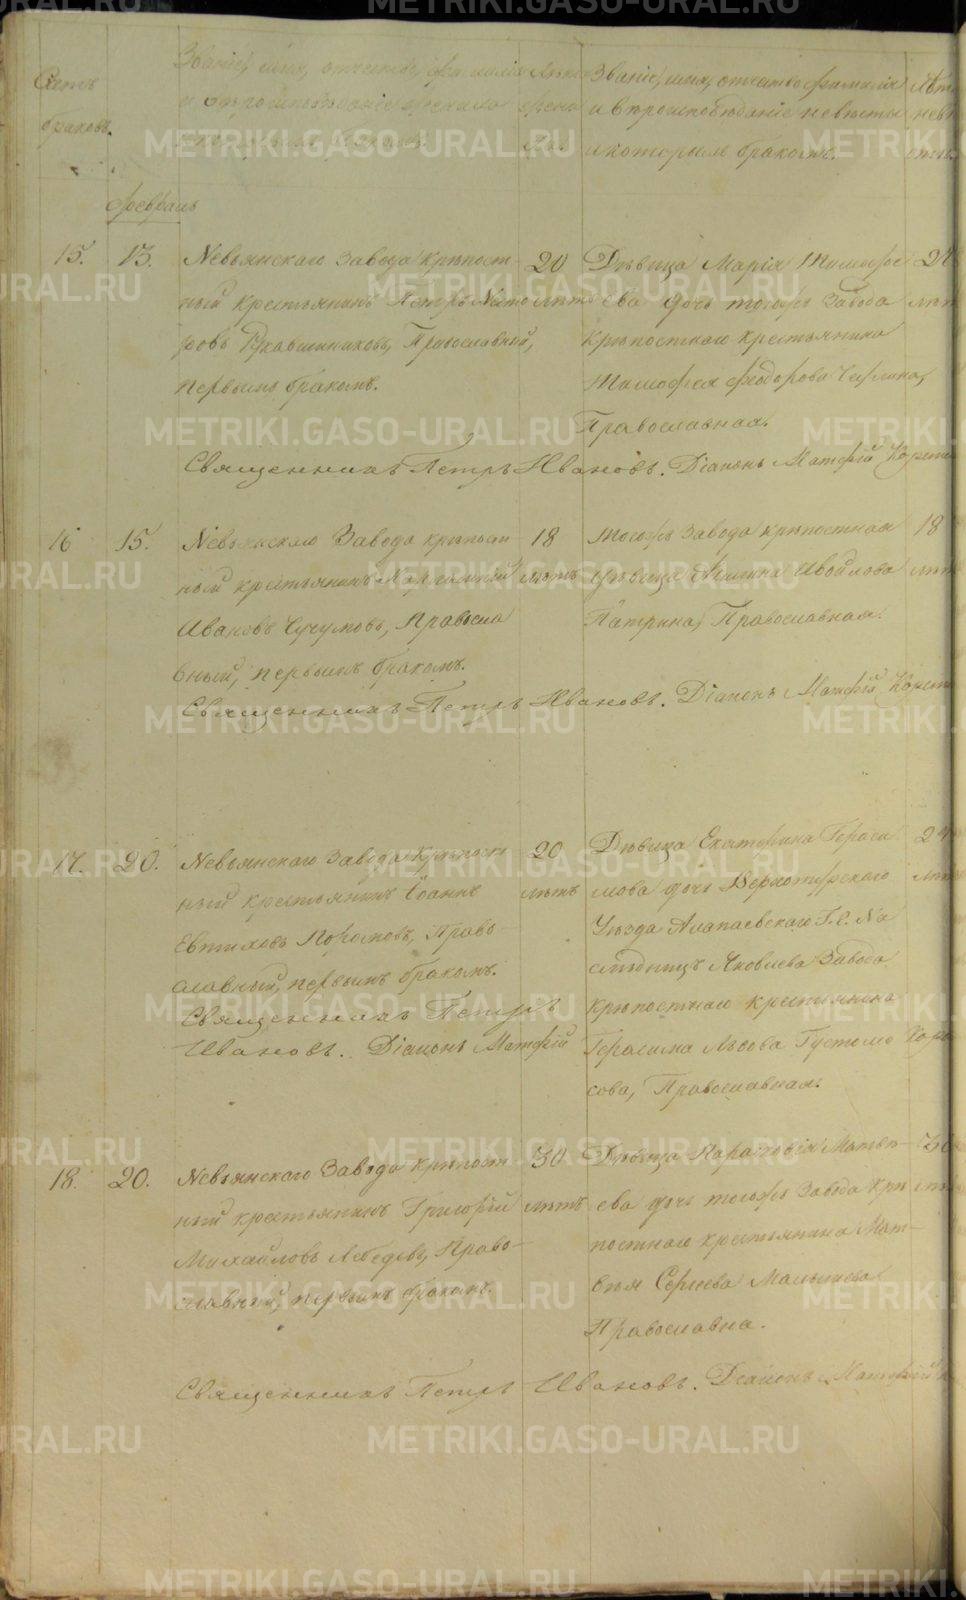 Счетъ браковъ.
Званіе, имя, отчество, фамилія
и вѣроисповѣданіе жениха
Лѣта жениха.
Званіе, имя, отчество фамилія
и вѣроисповѣданіе невѣсты
и которымъ бракомъ.
Февраль
15. 13. Невьянскаго Завода крѣпост-
ный крестьянинъ Петръ
ровъ Рукавишниковъ, Православный,
первымъ бракомъ.
20
лѣтъ
Дѣвица Марія Тимофе
ева дочь тогожъ Завода
крѣпостнаго крестьянина
Тимофея Федорова
Православная.
Священникъ Петръ Ивановъ. Діаконъ Матфій
16 15. Невьянскаго Завода крѣпост
ный крестьянинъ
Ивановъ Чучумовъ, Правосла
вный, первымъ бракомъ.
18
лѣтъ
тогожъ Завода крѣпостная
дѣвица
Патрина, Православная.
18
Священникъ Петръ Ивановъ. Діаконъ Матфій
17. 20. Невьянскаго Завода крѣпост
ный крестьянинъ Іоаннъ
Евтиховъ Право-
славный, первымъ бракомъ.
Священникъ Петръ
Ивановъ. Діаконъ Матфій
20
лѣтъ
Дѣвица Екатерина Гераси
мова дочь Верхотурскаго
Уѣзда Алапаевскаго Г.С. На
слѣдницъ Яковлева Завода
крѣпостнаго крестьянина
Герасима Львова Густомѣ
сова, Православная.
18. 20. Невьянскаго Завода крѣпост
ный крестьянинъ Григорій
Михайловъ Лебедевъ, Право-
славный, первымъ бракомъ.
30
лѣтъ
Дѣвица Парасковія Матвѣ-
ева дочь тогожъ Завода крѣ
постнаго крестьянина Мат-
вѣя Сергѣева Малышева
Православна.
Священникъ Петръ Ивановъ. Діаконъ Матфій
METRIKI.GASO-URAL.RU